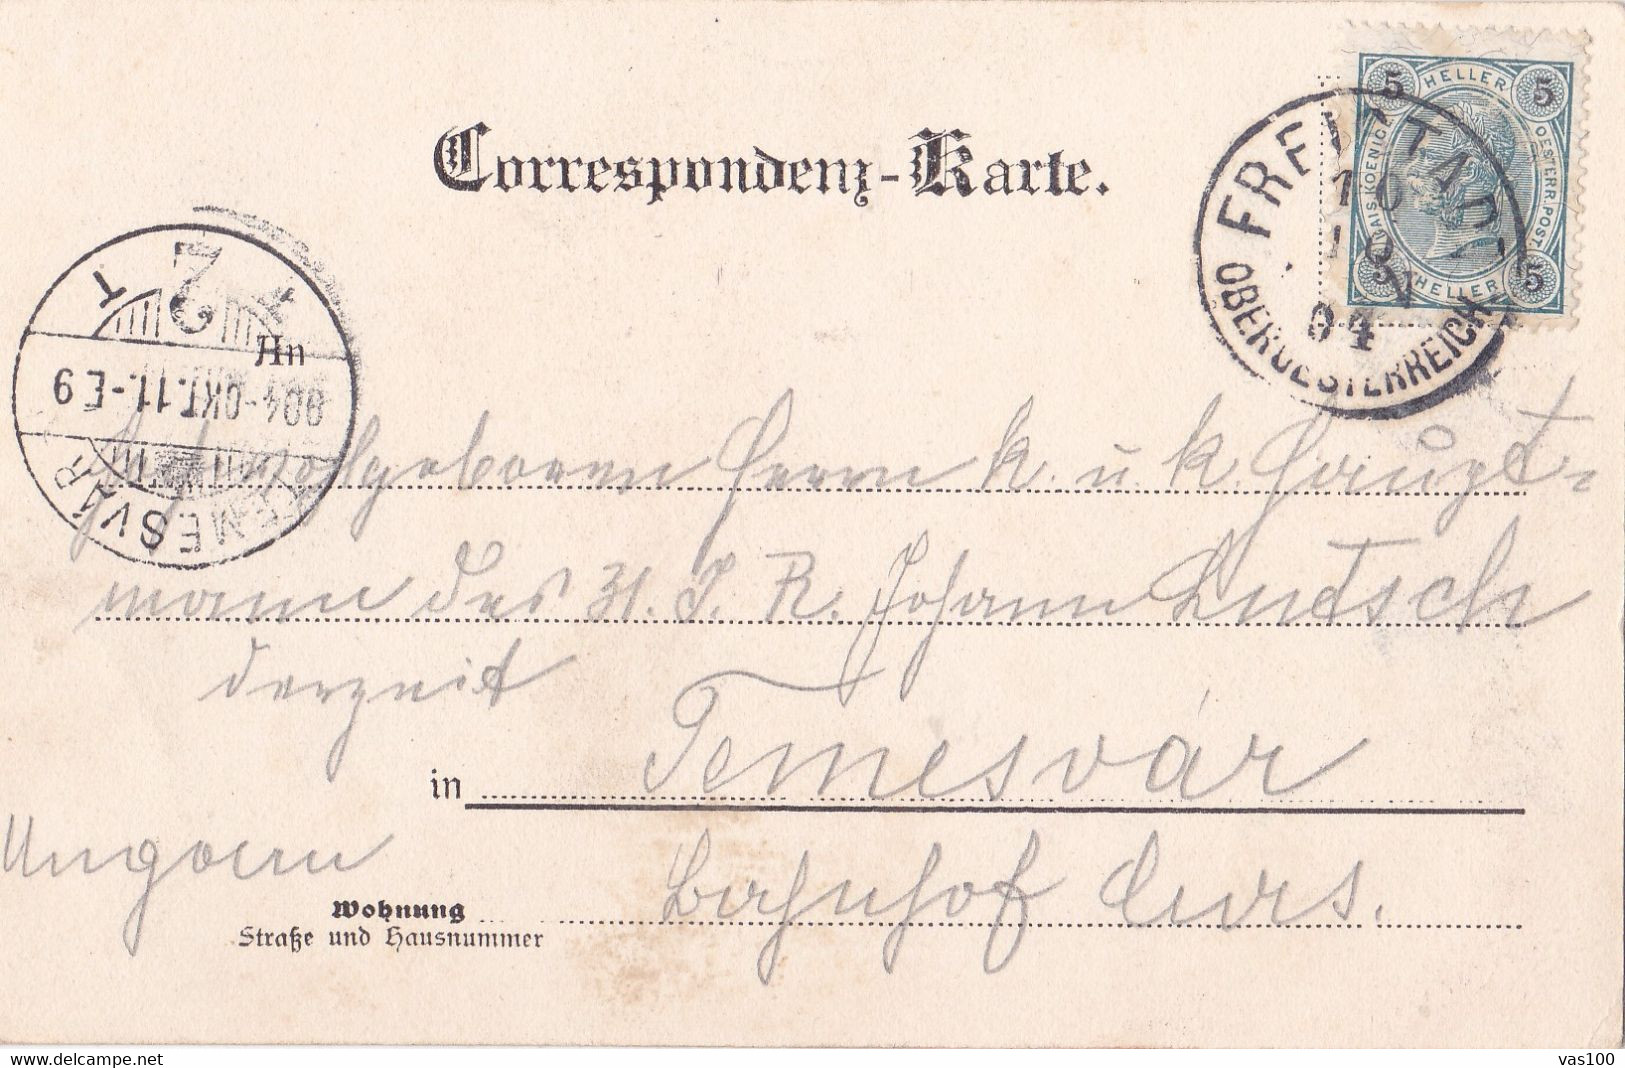 Correspondenz-Karte.
5 HELLER 5
KAIS. KOENIGL.
OESTERR. POST.
5 HELLER 5
FREISTADT
10
10
04
OBEROESTERREICH
2
T
An
904-OKT.11.-E9
TEMESVÁR
Hochwolgeboren Herrn k. u. k. Haupt=
mann des 31. J. R. Johann Lutsch
derzeit
in Temesvár
Ungarn Bahnhof Curs.
Wohnung
Straße und Hausnummer
www.delcampe.net
vas100